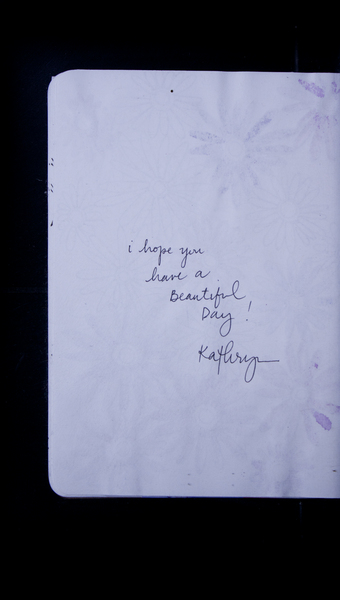 i hope you
have a
Beautiful
Day!
Kathryn